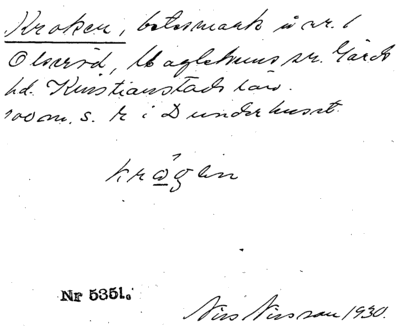 Kroken, betesmark å nr. 1
Olseröd, Maglehems sn. Gärds
hd. Kristianstads län.
100 m. s. k i Dunderhuset.
kråǥen
Nr 5351.
Nils Nilsson 1930.